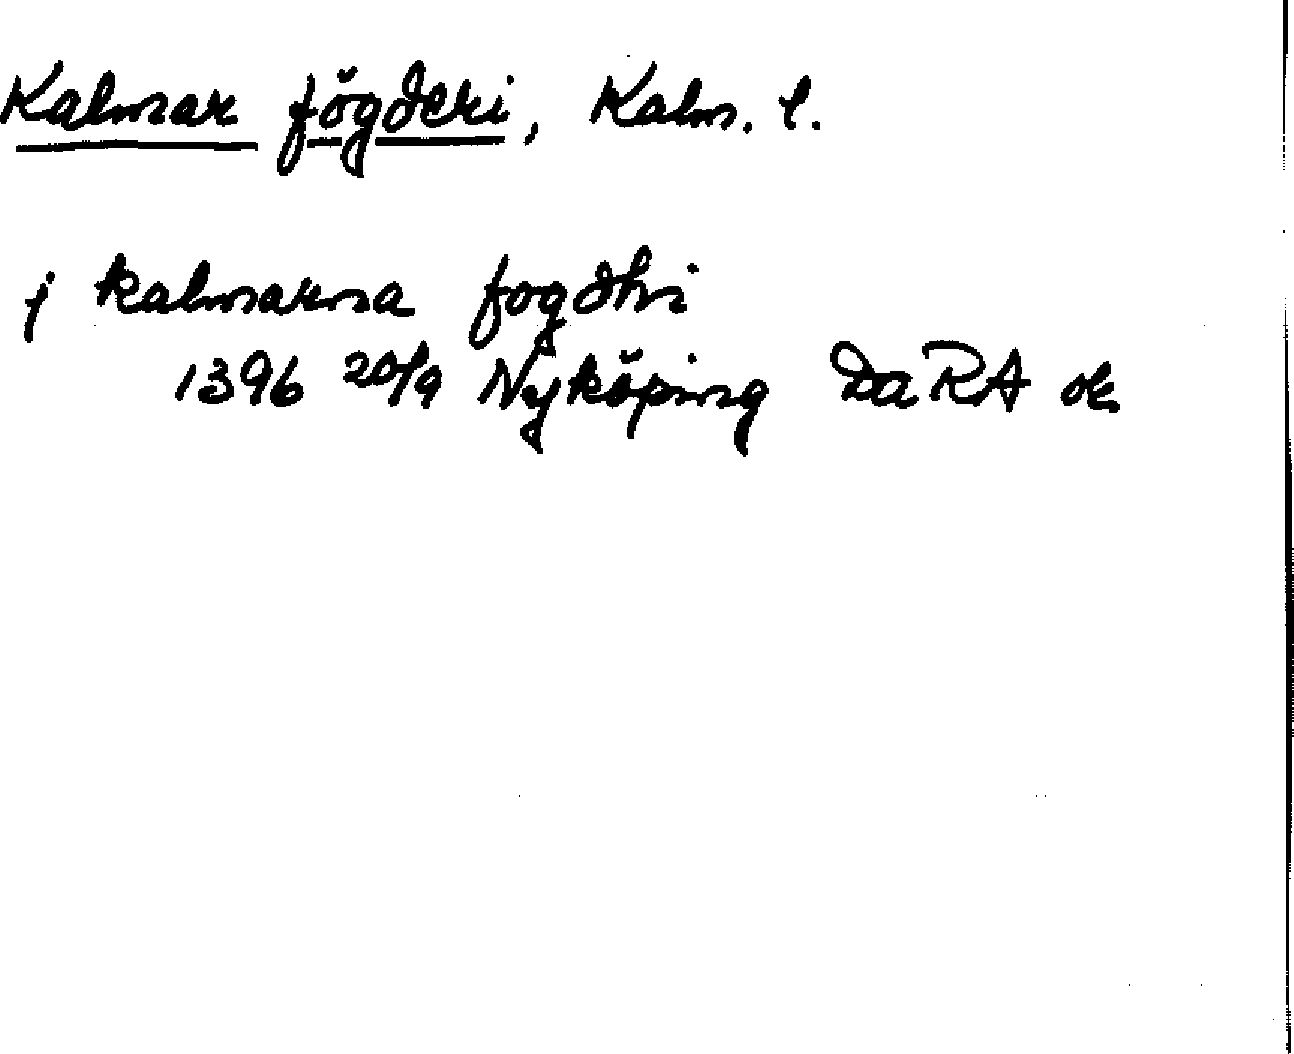 Kalmar fögderi, Kalm. l.
j kalmarna fogdhi
1396 20/9 Nyköping DaRA or.